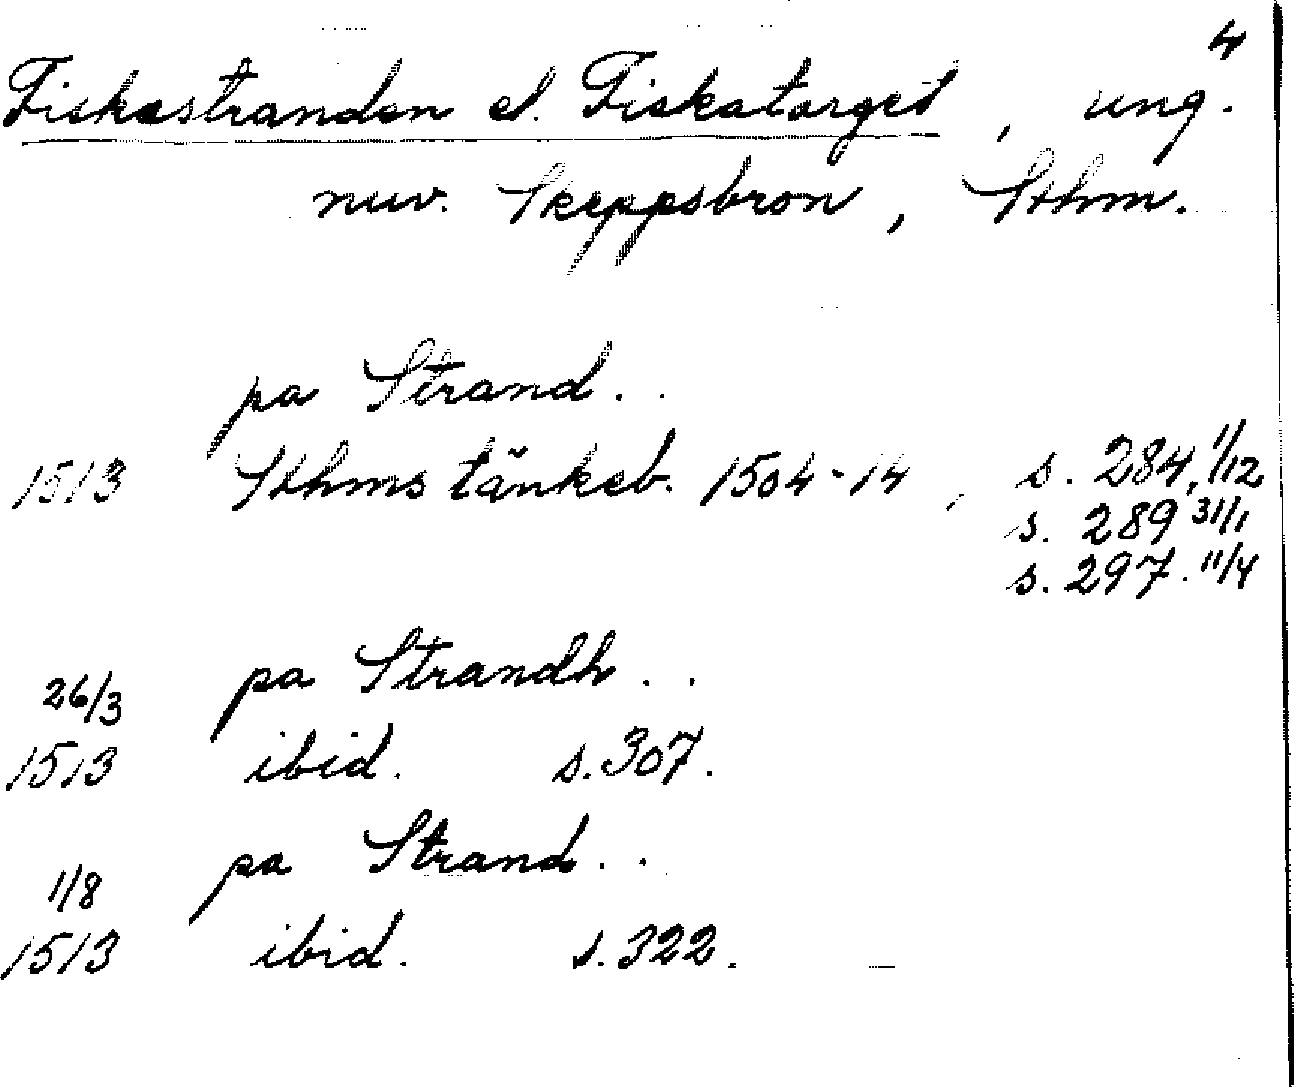 4
Fiskastranden el. Fiskatorget, ung.
nuv. Skeppsbron, Sthm.
pa Strand..
1513 Sthms tänkeb. 1504-14, s. 284, 1/12
s. 289 31/1
s. 297. 11/4
26/3 pa Strandh..
1513 ibid. s. 307.
1/8 pa Strand..
1513 ibid. s. 322.